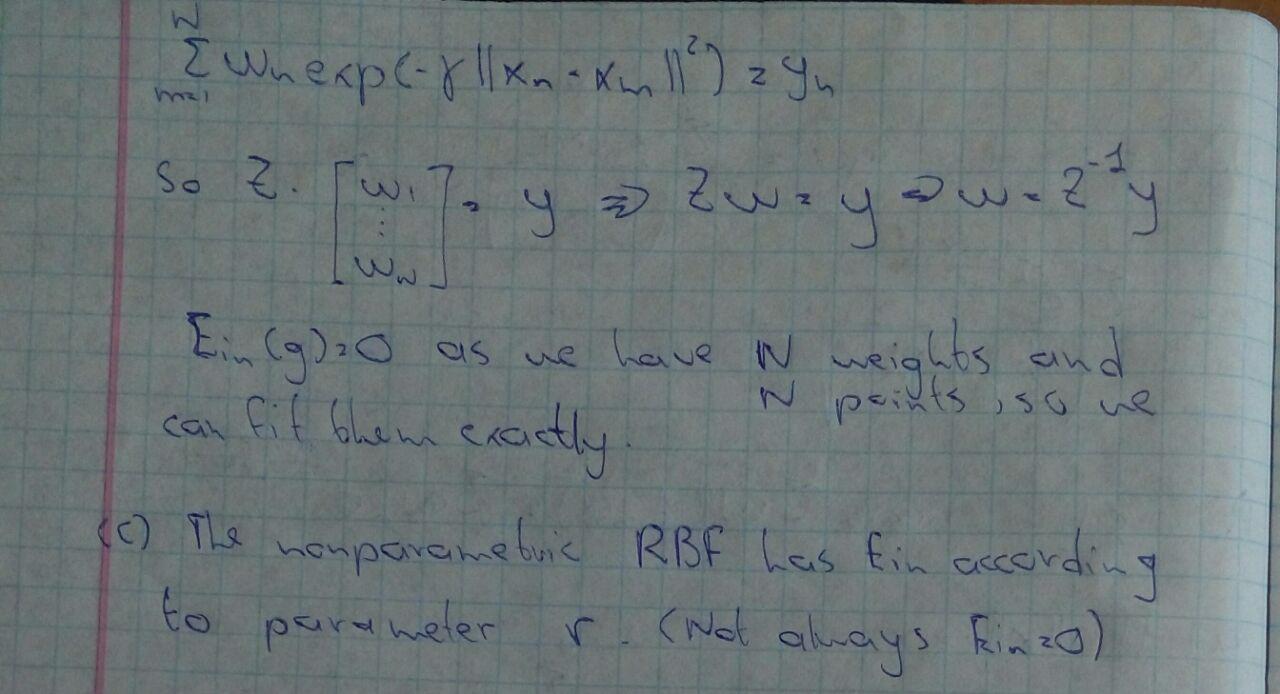 N
Σ wn exp(-γ||xn - xm||²) = yn
m=1
So Z. [w1 ⋮ wN] = y ⇒ Zw = y ⇒ w = Z⁻¹y
Ein(g)=0 as we have N weights and
N points, so we
can fit them exactly.
(c) The nonparametric RBF has Ein according
to parameter r. (Not always Ein=0)